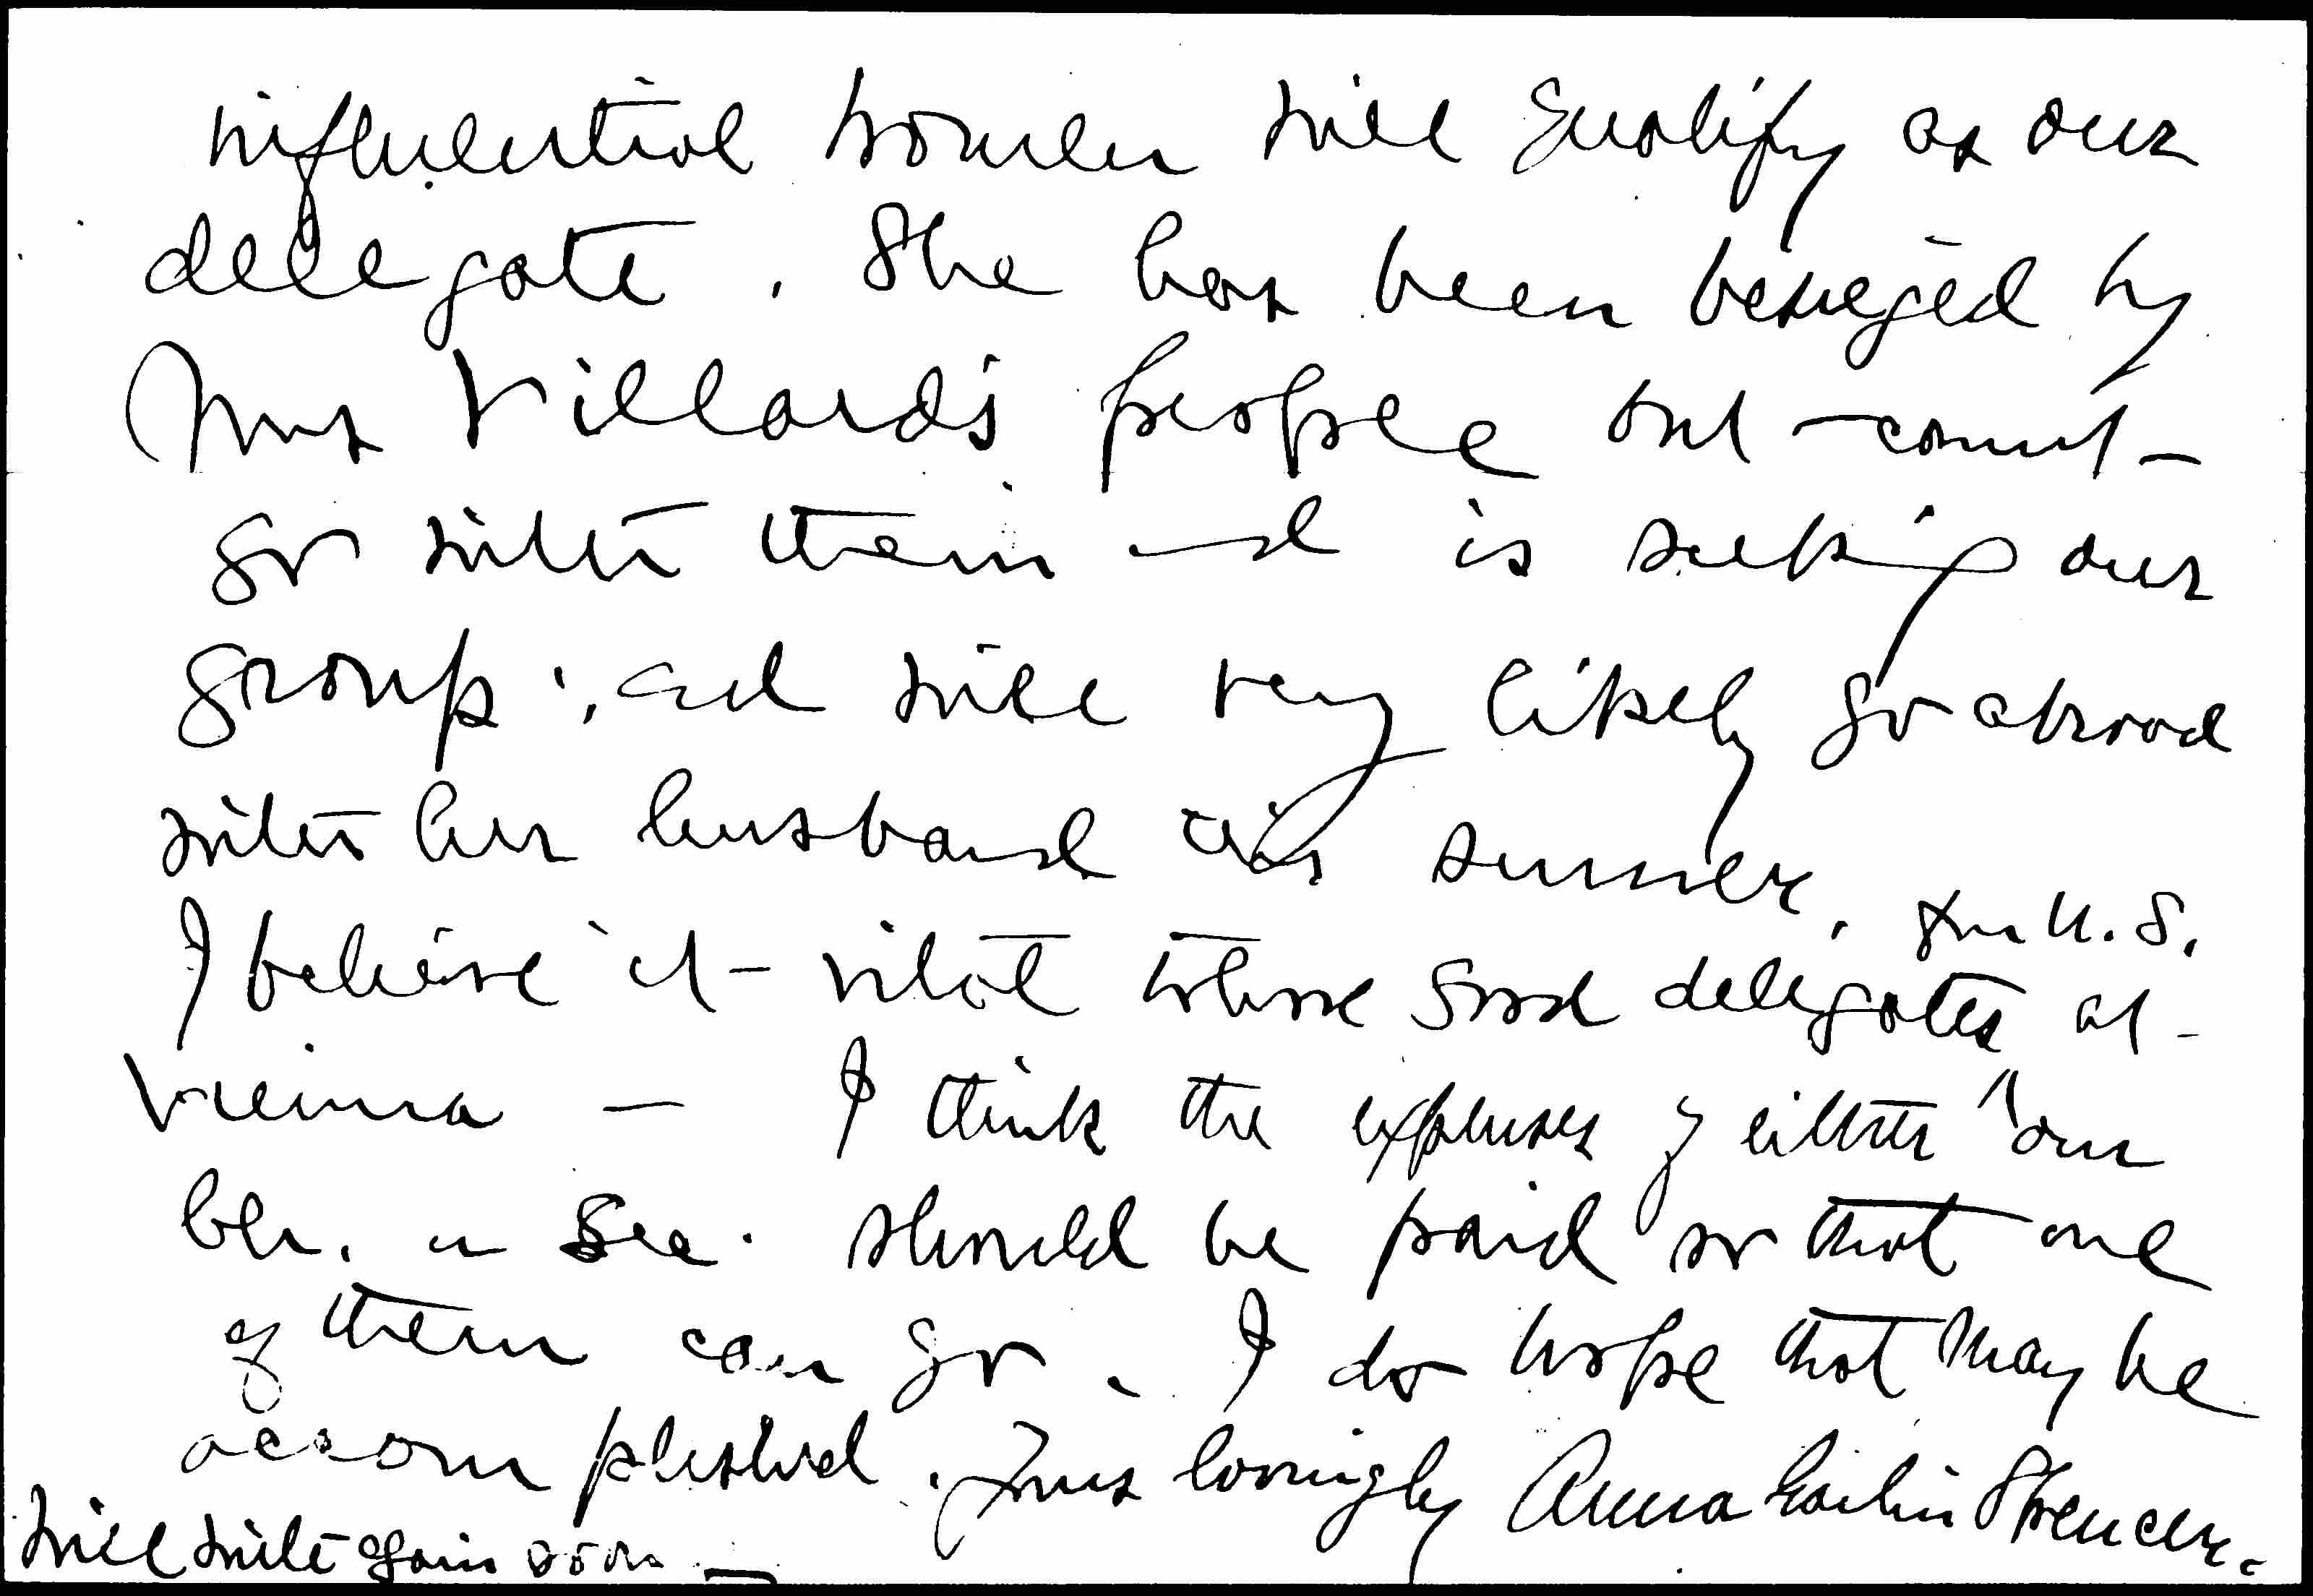 influential women will qualify as our
delegate. She has been besieged by
Mrs Villard's people but can't
go with them and is seeking our
group; and will very likely go abroad
with her husband this summer.
I believe it vital to have good delegates at
for U.S.
Vienna — I think the expenses of either our
Ch. or Sec. should be paid so that one
of them can go. I do hope that may be
accomplished. Yours lovingly Anna Garlin Spencer.
Will write again soon —